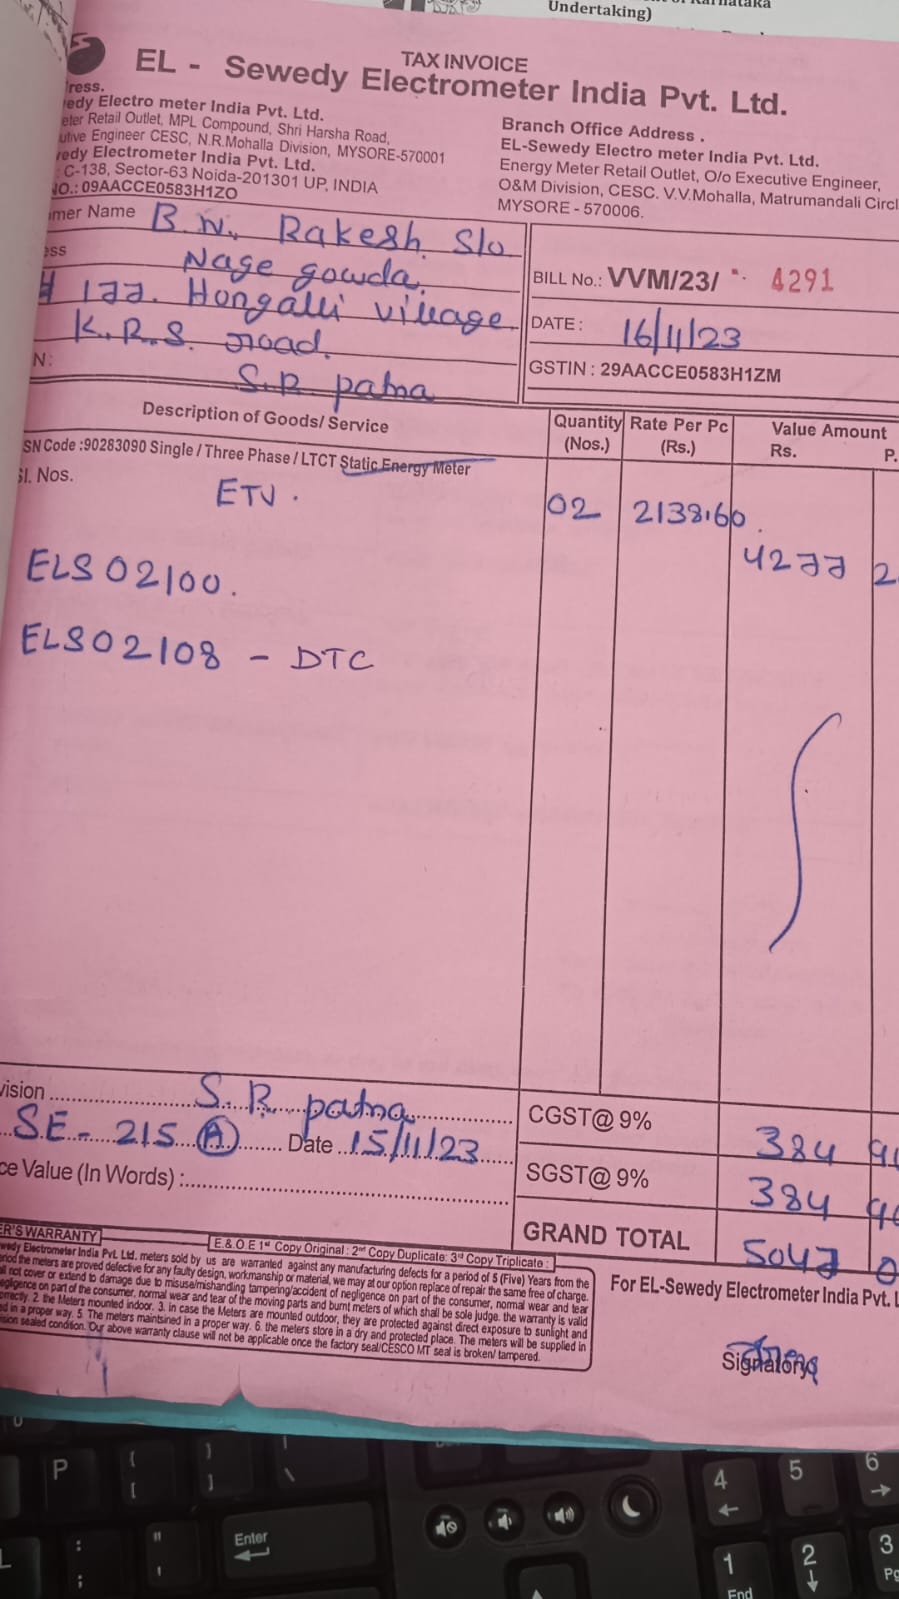 Karnataka
Undertaking)
TAX INVOICE
EL - Sewedy Electrometer India Pvt. Ltd.
ress.
edy Electro meter India Pvt. Ltd.
eter Retail Outlet, MPL Compound, Shri Harsha Road,
utive Engineer CESC, N.R.Mohalla Division, MYSORE-570001
edy Electrometer India Pvt. Ltd.
C-138, Sector-63 Noida-201301 UP, INDIA
NO.: 09AACCE0583H1ZO
Branch Office Address .
EL-Sewedy Electro meter India Pvt. Ltd.
Energy Meter Retail Outlet, O/o Executive Engineer,
O&M Division, CESC. V.V.Mohalla, Matrumandali Circl
MYSORE - 570006.
mer Name B.N. Rakesh S/o
ess Nage gowda.
# 177. Hongalli village
K.R.S. road.
N: S.R. patna
BILL No.: VVM/23/ 4291
DATE : 16/11/23
GSTIN : 29AACCE0583H1ZM
Description of Goods/ Service
Quantity (Nos.)
Rate Per Pc (Rs.)
Value Amount
Rs. P.
SN Code :90283090 Single / Three Phase / LTCT Static Energy Meter
Sl. Nos.
ETV . 02 2138.60
4277 2
ELS02100.
ELS02108 - DTC
vision S.R. patna
SE- 215 A Date 15/11/23
ce Value (In Words) :
CGST@ 9% 384 9
SGST@ 9% 384 9
GRAND TOTAL 5047 0
ER'S WARRANTY
E.& O.E 1st Copy Original : 2nd Copy Duplicate: 3rd Copy Triplicate :
wedy Electrometer India Pvt. Ltd. meters sold by us are warranted against any manufacturing defects for a period of 5 (Five) Years from the
eriod the meters are proved defective for any faulty design, workmanship or material, we may at our option replace of repair the same free of charge.
ll not cover or extend to damage due to misuse/mishanding tampering/accident of negligence on part of the consumer, normal wear and tear
egligence on part of the consumer, normal wear and tear of the moving parts and burnt meters of which shall be sole judge. the warranty is valid
orrectly. 2. the Meters mounted indoor. 3. in case the Meters are mounted outdoor, they are protected against direct exposure to sunlight and
ed in a proper way. 5. The meters maintsined in a proper way. 6. the meters store in a dry and protected place. The meters will be supplied in
sion sealed condition. Our above warranty clause will not be applicable once the factory seal/CESCO MT seal is broken/ tampered.
For EL-Sewedy Electrometer India Pvt. L
Signatory
P
{ [
} ]
| \
4
5
6
: ;
" '
Enter
1
End
2
3
Pg
L